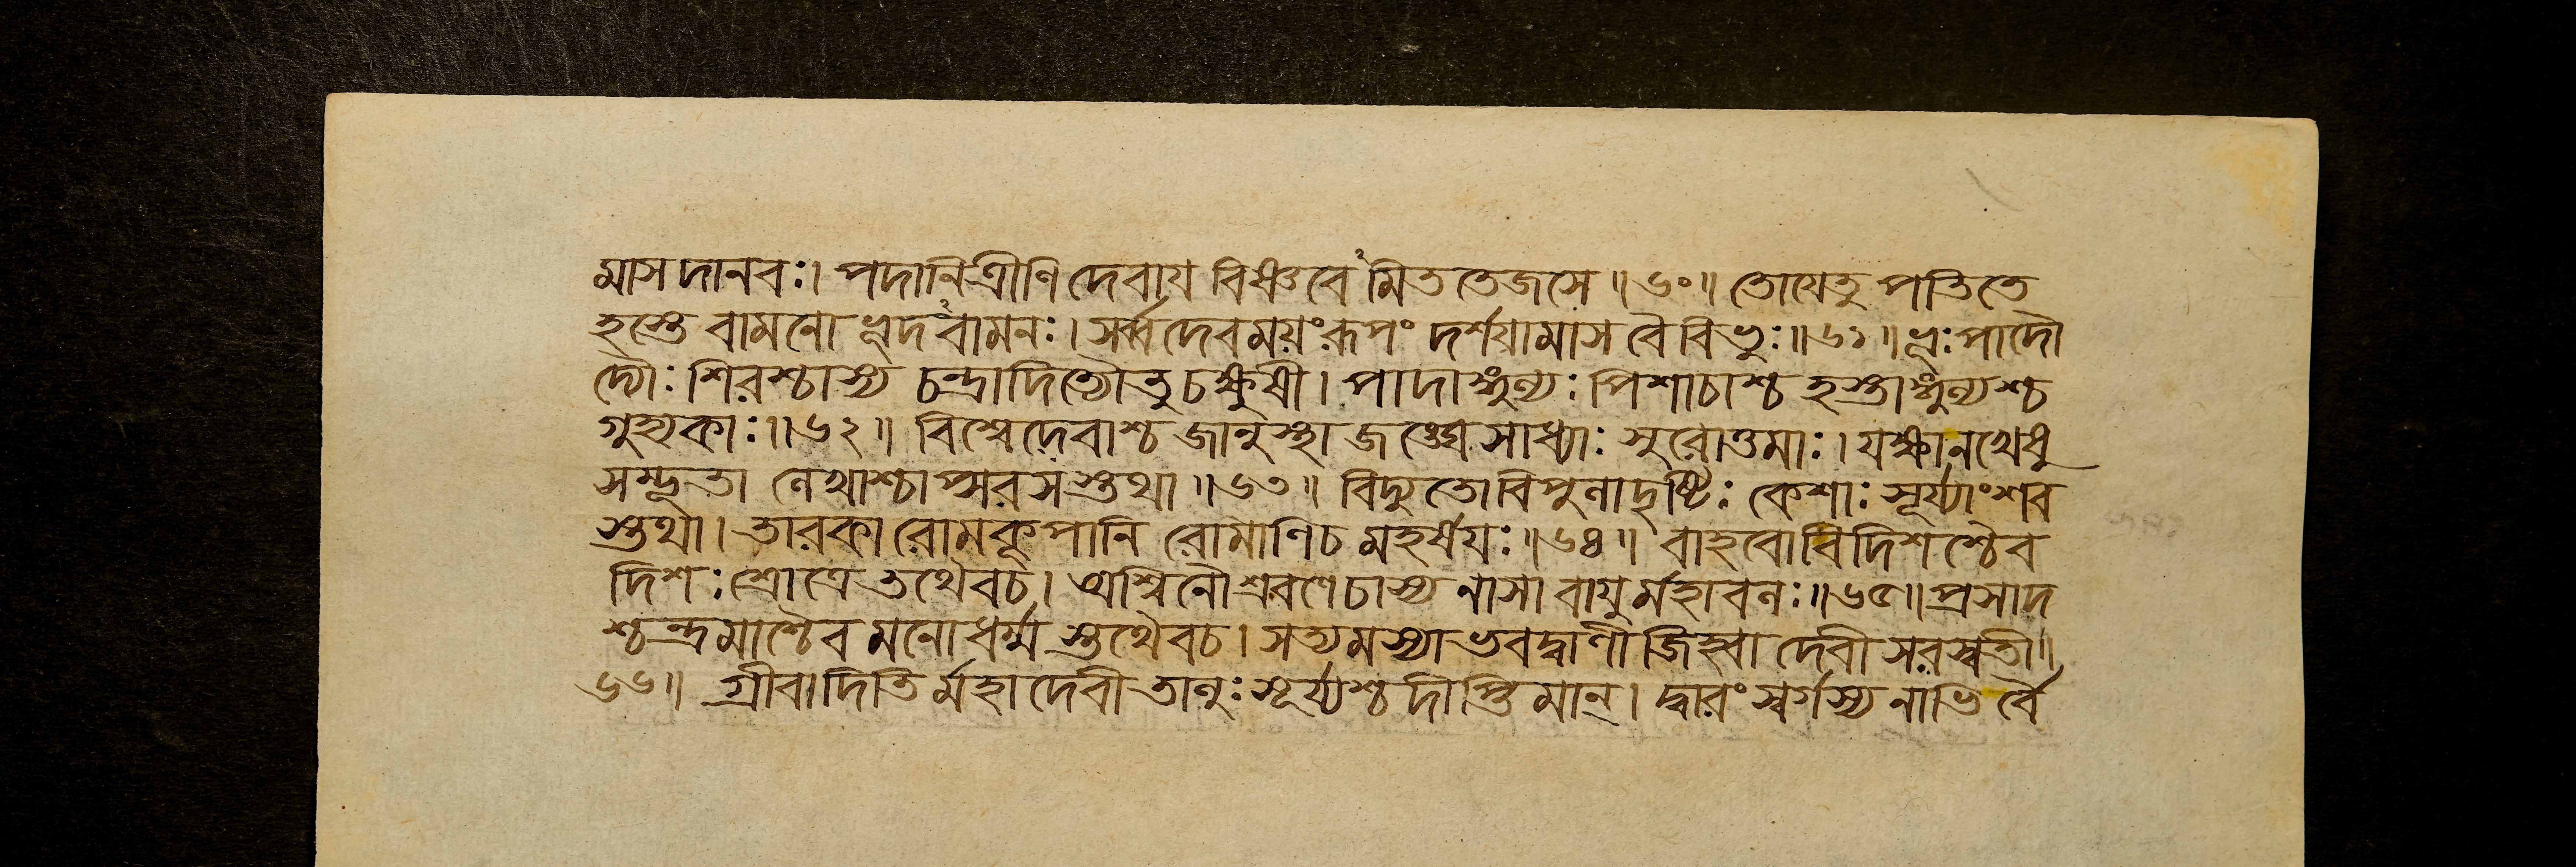 মাস দানবঃ। পদানি ত্রীণি দেবায় বিষ্ণবেঽমিত তেজসে॥৬০॥ তোয়েতু পতিতে
হস্তে বামনো ভূদঽবামনঃ। সর্ব্বদেবময়ং রূপং দর্শয়ামাস বৈ বিভুঃ॥৬১॥ ভূঃ পাদৌ
দ্যৌঃ শিরশ্চাস্য চন্দ্রাদিত্যৌতু চক্ষুষী। পাদাঙ্গুল্যঃ পিশাচাশ্চ হস্তাঙ্গুল্যশ্চ
গুহ্যকাঃ॥৬২॥ বিশ্বেদেবাশ্চ জানুস্থা জঙ্ঘে সাধ্যাঃ সুরোত্তমাঃ। যক্ষা নখেষু
সম্ভূতা লেখাশ্চাপ্সরসস্তথা॥৬৩॥ বিদ্যুতো বিপুলা দৃষ্টিঃ কেশাঃ সূর্য্যাংশব
স্তথা। তারকা রোমকূপানি রোমাণিচ মহর্ষয়ঃ॥৬৪॥ বাহবো বিদিশশ্চৈব
দিশঃ শ্রোত্রে তথৈবচ। অশ্বিনৌ শ্রবণে চাস্য নাসা বায়ুর্মহাবলঃ॥৬৫॥ প্রসাদ
শ্চন্দ্রমাশ্চৈব মনোধর্ম্ম স্তথৈবচ। সত্যমস্যাভবদ্বাণী জিহ্বা দেবী সরস্বতী॥
৬৬॥ গ্রীবাদিতি র্মহাদেবী তালুঃ সূর্য্যশ্চ দীপ্তিমান্। দ্বারং স্বর্গস্য নাভি র্বৈ